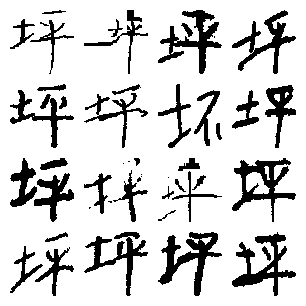 坪坪坪坪
坪坪坏坪
坪坪坪坪
坪坪坪坪